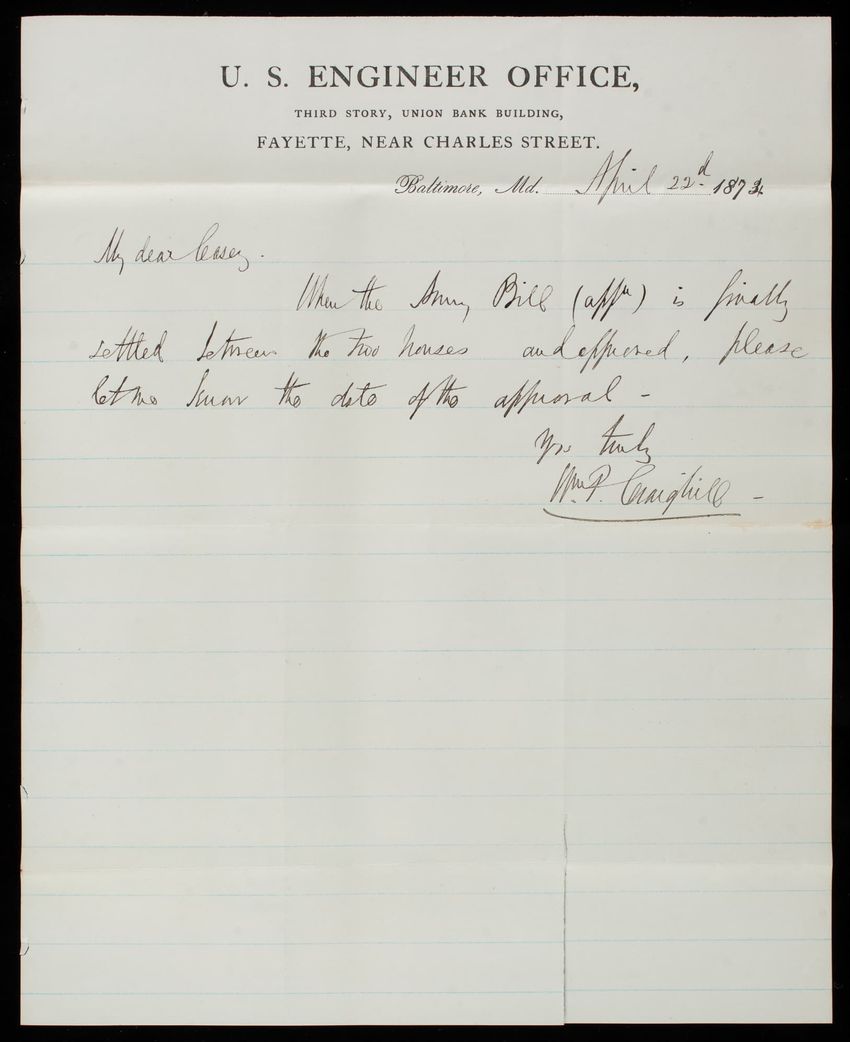 U. S. ENGINEER OFFICE,
THIRD STORY, UNION BANK BUILDING,
FAYETTE, NEAR CHARLES STREET.
Baltimore, Md. April 22d 1874
My dear Casey.
When the Army Bill (appn) is finally
settled between the two houses and approved, please
let me know the date of the approval -
Yrs truly
Wm. P. Craighill -